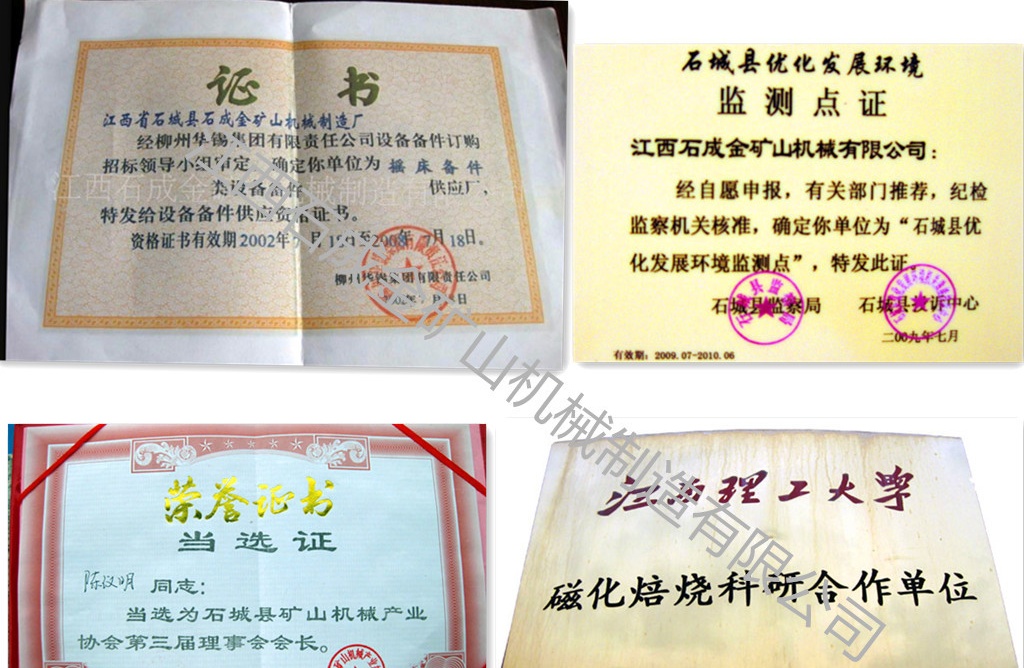 证 书
江西省石城县石成金矿山机械制造厂
经柳州华锡集团有限责任公司设备备件订购
招标领导小组审定，确定你单位为 摇床备件
类设备备件 供应厂，
特发给设备备件供应资格证书。
资格证书有效期2002年7月19日至2008年7月18日。
柳州华锡集团有限责任公司
石城县优化发展环境
监测点证
江西石成金矿山机械有限公司：
经自愿申报，有关部门推荐，纪检
监察机关核准，确定你单位为“石城县优
化发展环境监测点”，特发此证。
石城县监察局 石城县投诉中心
二00九年七月
有效期：2009.07-2010.06
荣誉证书
当选证
陈仪明 同志：
当选为石城县矿山机械产业
协会第三届理事会会长。
江西理工大学
磁化焙烧科研合作单位
江西石成金矿山机械制造有限公司